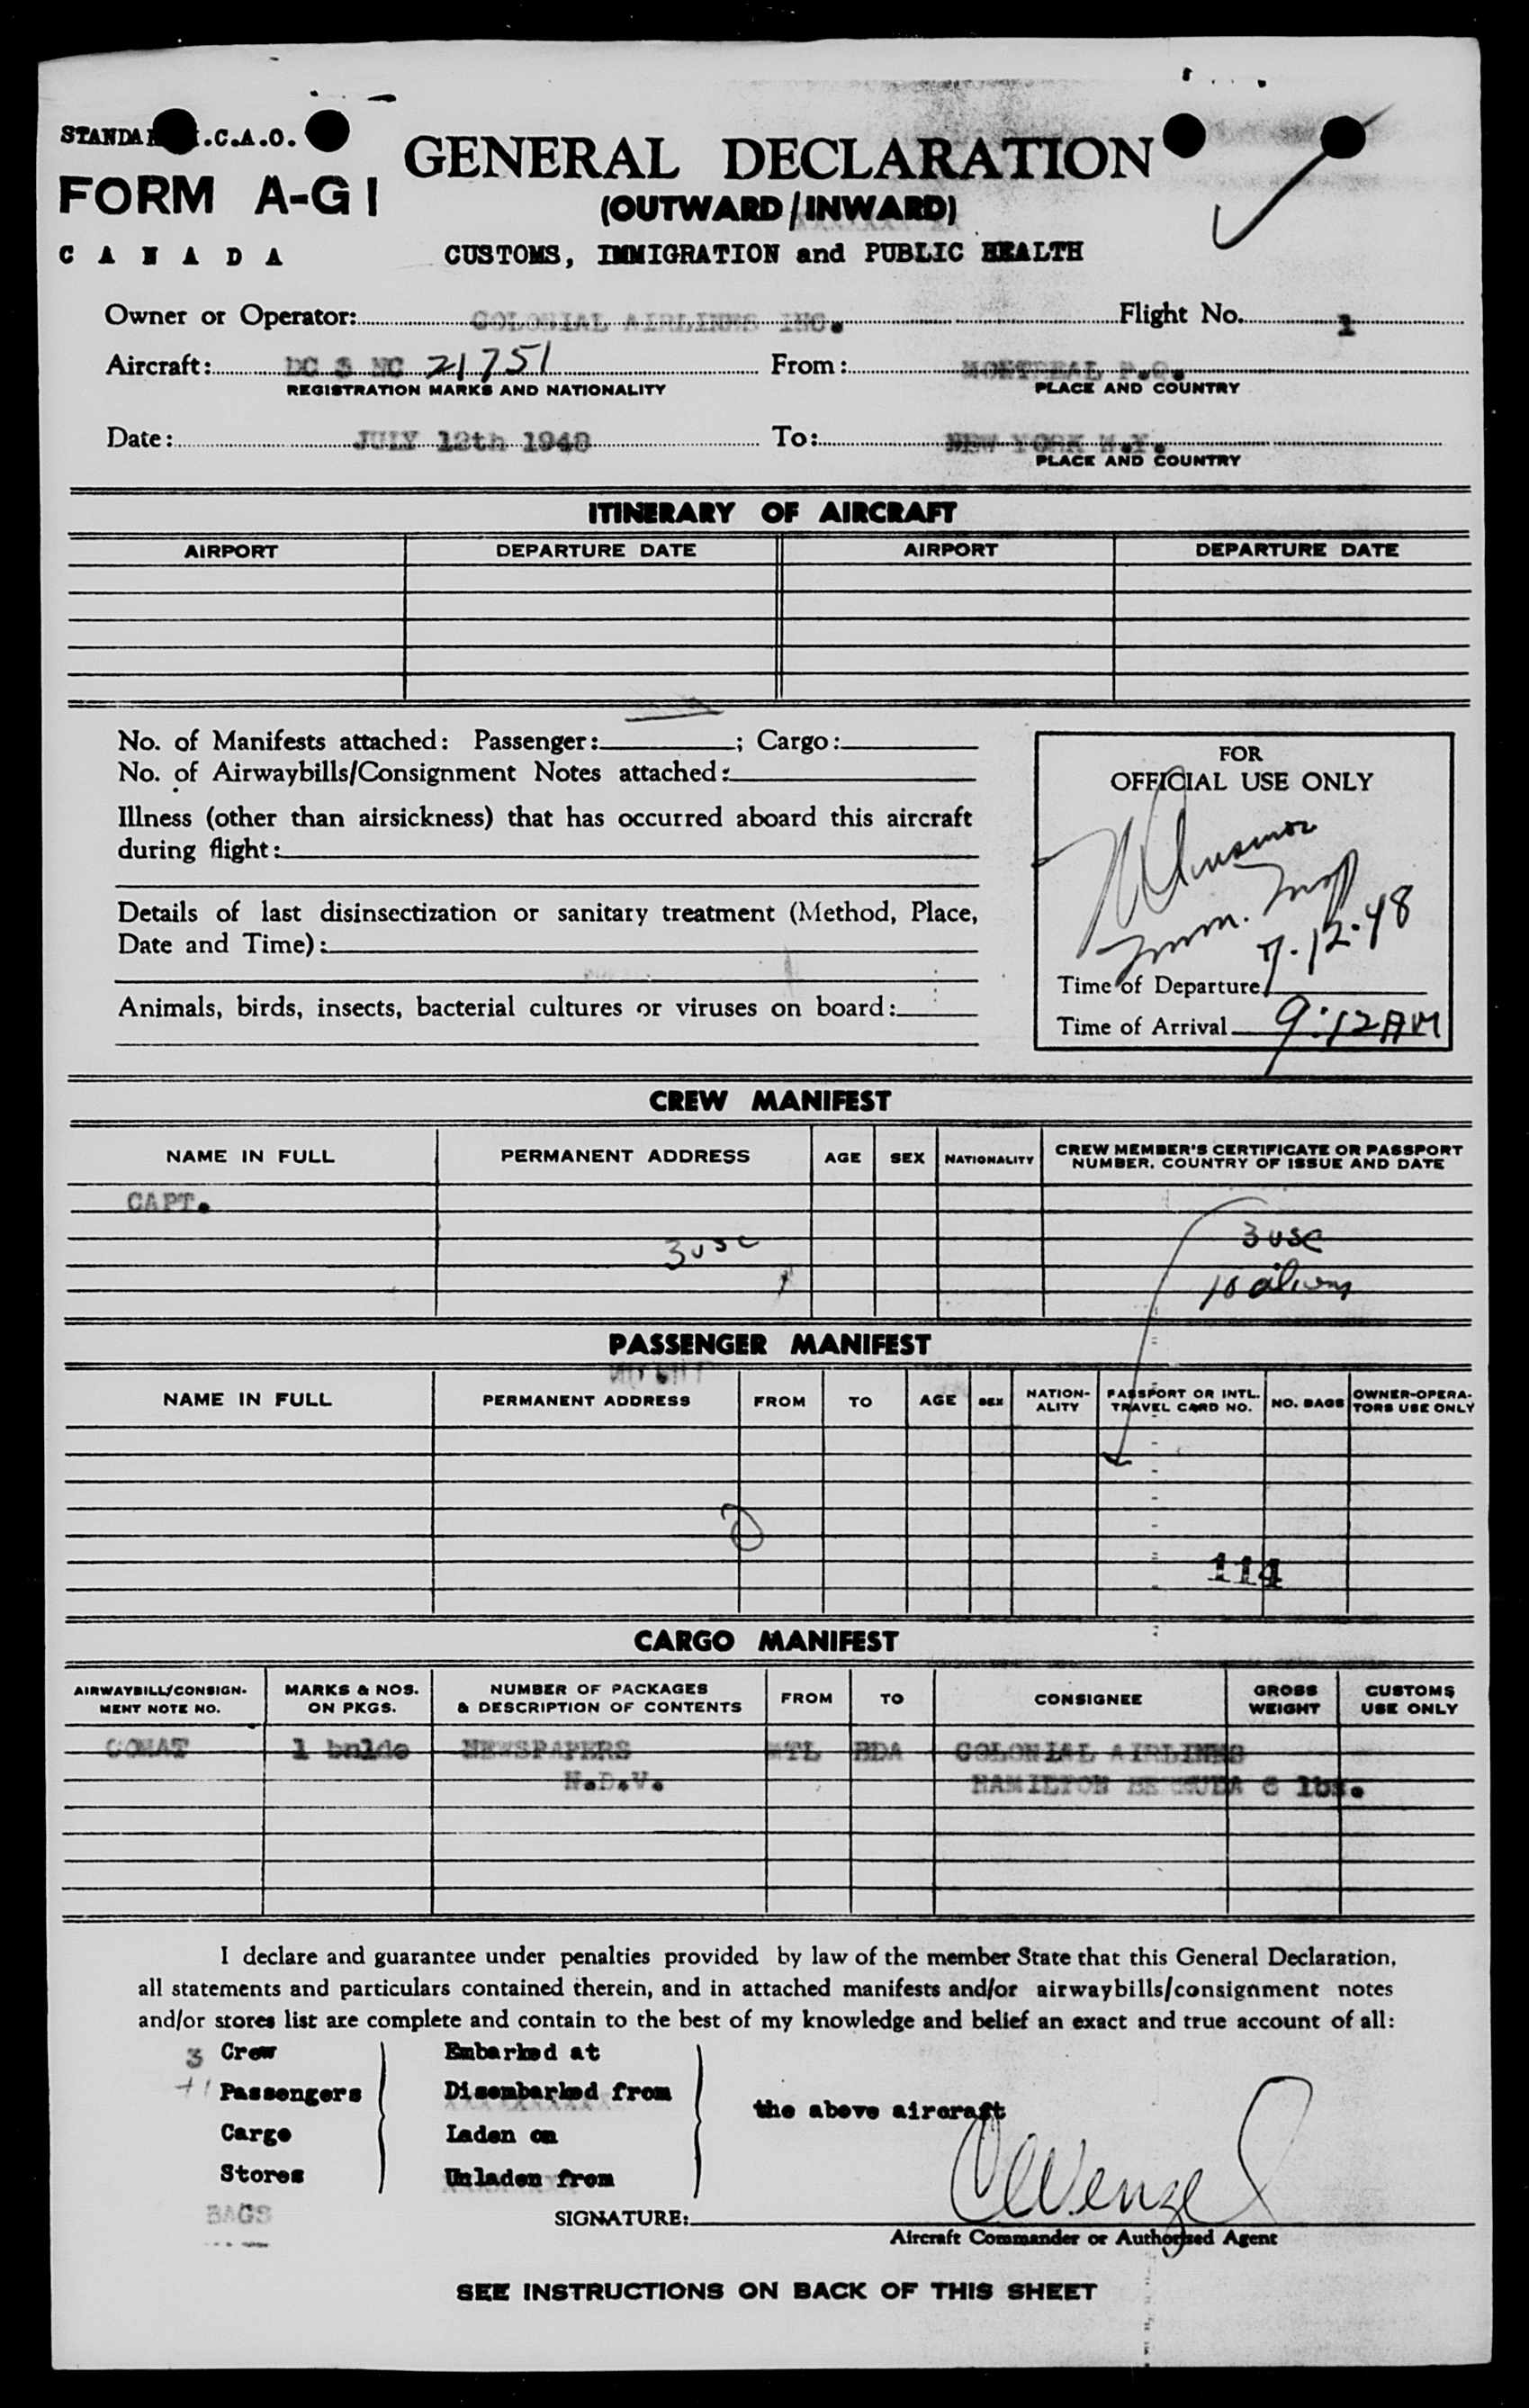 STANDA .C.A.O.
GENERAL DECLARATION
FORM A-G1
(OUTWARD/INWARD)
CANADA
CUSTOMS, IMMIGRATION and PUBLIC HEALTH
Owner or Operator: COLONIAL AIRLINES INC. Flight No. 1
Aircraft: DC 3 NC 21751 From: MONTREAL P.Q.
REGISTRATION MARKS AND NATIONALITY PLACE AND COUNTRY
Date: JULY 12th 1948 To: NEW YORK N.Y.
PLACE AND COUNTRY
ITINERARY OF AIRCRAFT
AIRPORT DEPARTURE DATE AIRPORT DEPARTURE DATE
No. of Manifests attached: Passenger: ; Cargo:
No. of Airwaybills/Consignment Notes attached:
Illness (other than airsickness) that has occurred aboard this aircraft
during flight:
Details of last disinsectization or sanitary treatment (Method, Place,
Date and Time):
Animals, birds, insects, bacterial cultures or viruses on board:
FOR
OFFICIAL USE ONLY
Imm. Insp
7.12.48
Time of Departure
Time of Arrival 9:12AM
CREW MANIFEST
NAME IN FULL PERMANENT ADDRESS AGE SEX NATIONALITY CREW MEMBER'S CERTIFICATE OR PASSPORT
NUMBER, COUNTRY OF ISSUE AND DATE
CAPT.
3 usc 3 usc
10 aliens
PASSENGER MANIFEST
NAME IN FULL PERMANENT ADDRESS FROM TO AGE SEX NATION-
ALITY PASSPORT OR INTL.
TRAVEL CARD NO. NO. BAGS OWNER-OPERA-
TORS USE ONLY
114
CARGO MANIFEST
AIRWAYBILL/CONSIGN-
MENT NOTE NO. MARKS & NOS.
ON PKGS. NUMBER OF PACKAGES
& DESCRIPTION OF CONTENTS FROM TO CONSIGNEE GROSS
WEIGHT CUSTOMS
USE ONLY
COMAT 1 bnlde NEWSPAPERS MTL BDA COLONIAL AIRLINES
N.D.V. HAMILTON BERMUDA 6 lbs.
I declare and guarantee under penalties provided by law of the member State that this General Declaration,
all statements and particulars contained therein, and in attached manifests and/or airwaybills/consignment notes
and/or stores list are complete and contain to the best of my knowledge and belief an exact and true account of all:
3 Crew Embarked at
Passengers Disembarked from
the above aircraft
Cargo Laden on
Stores Unladen from
BAGS
SIGNATURE: Wenzel
Aircraft Commander or Authorized Agent
SEE INSTRUCTIONS ON BACK OF THIS SHEET